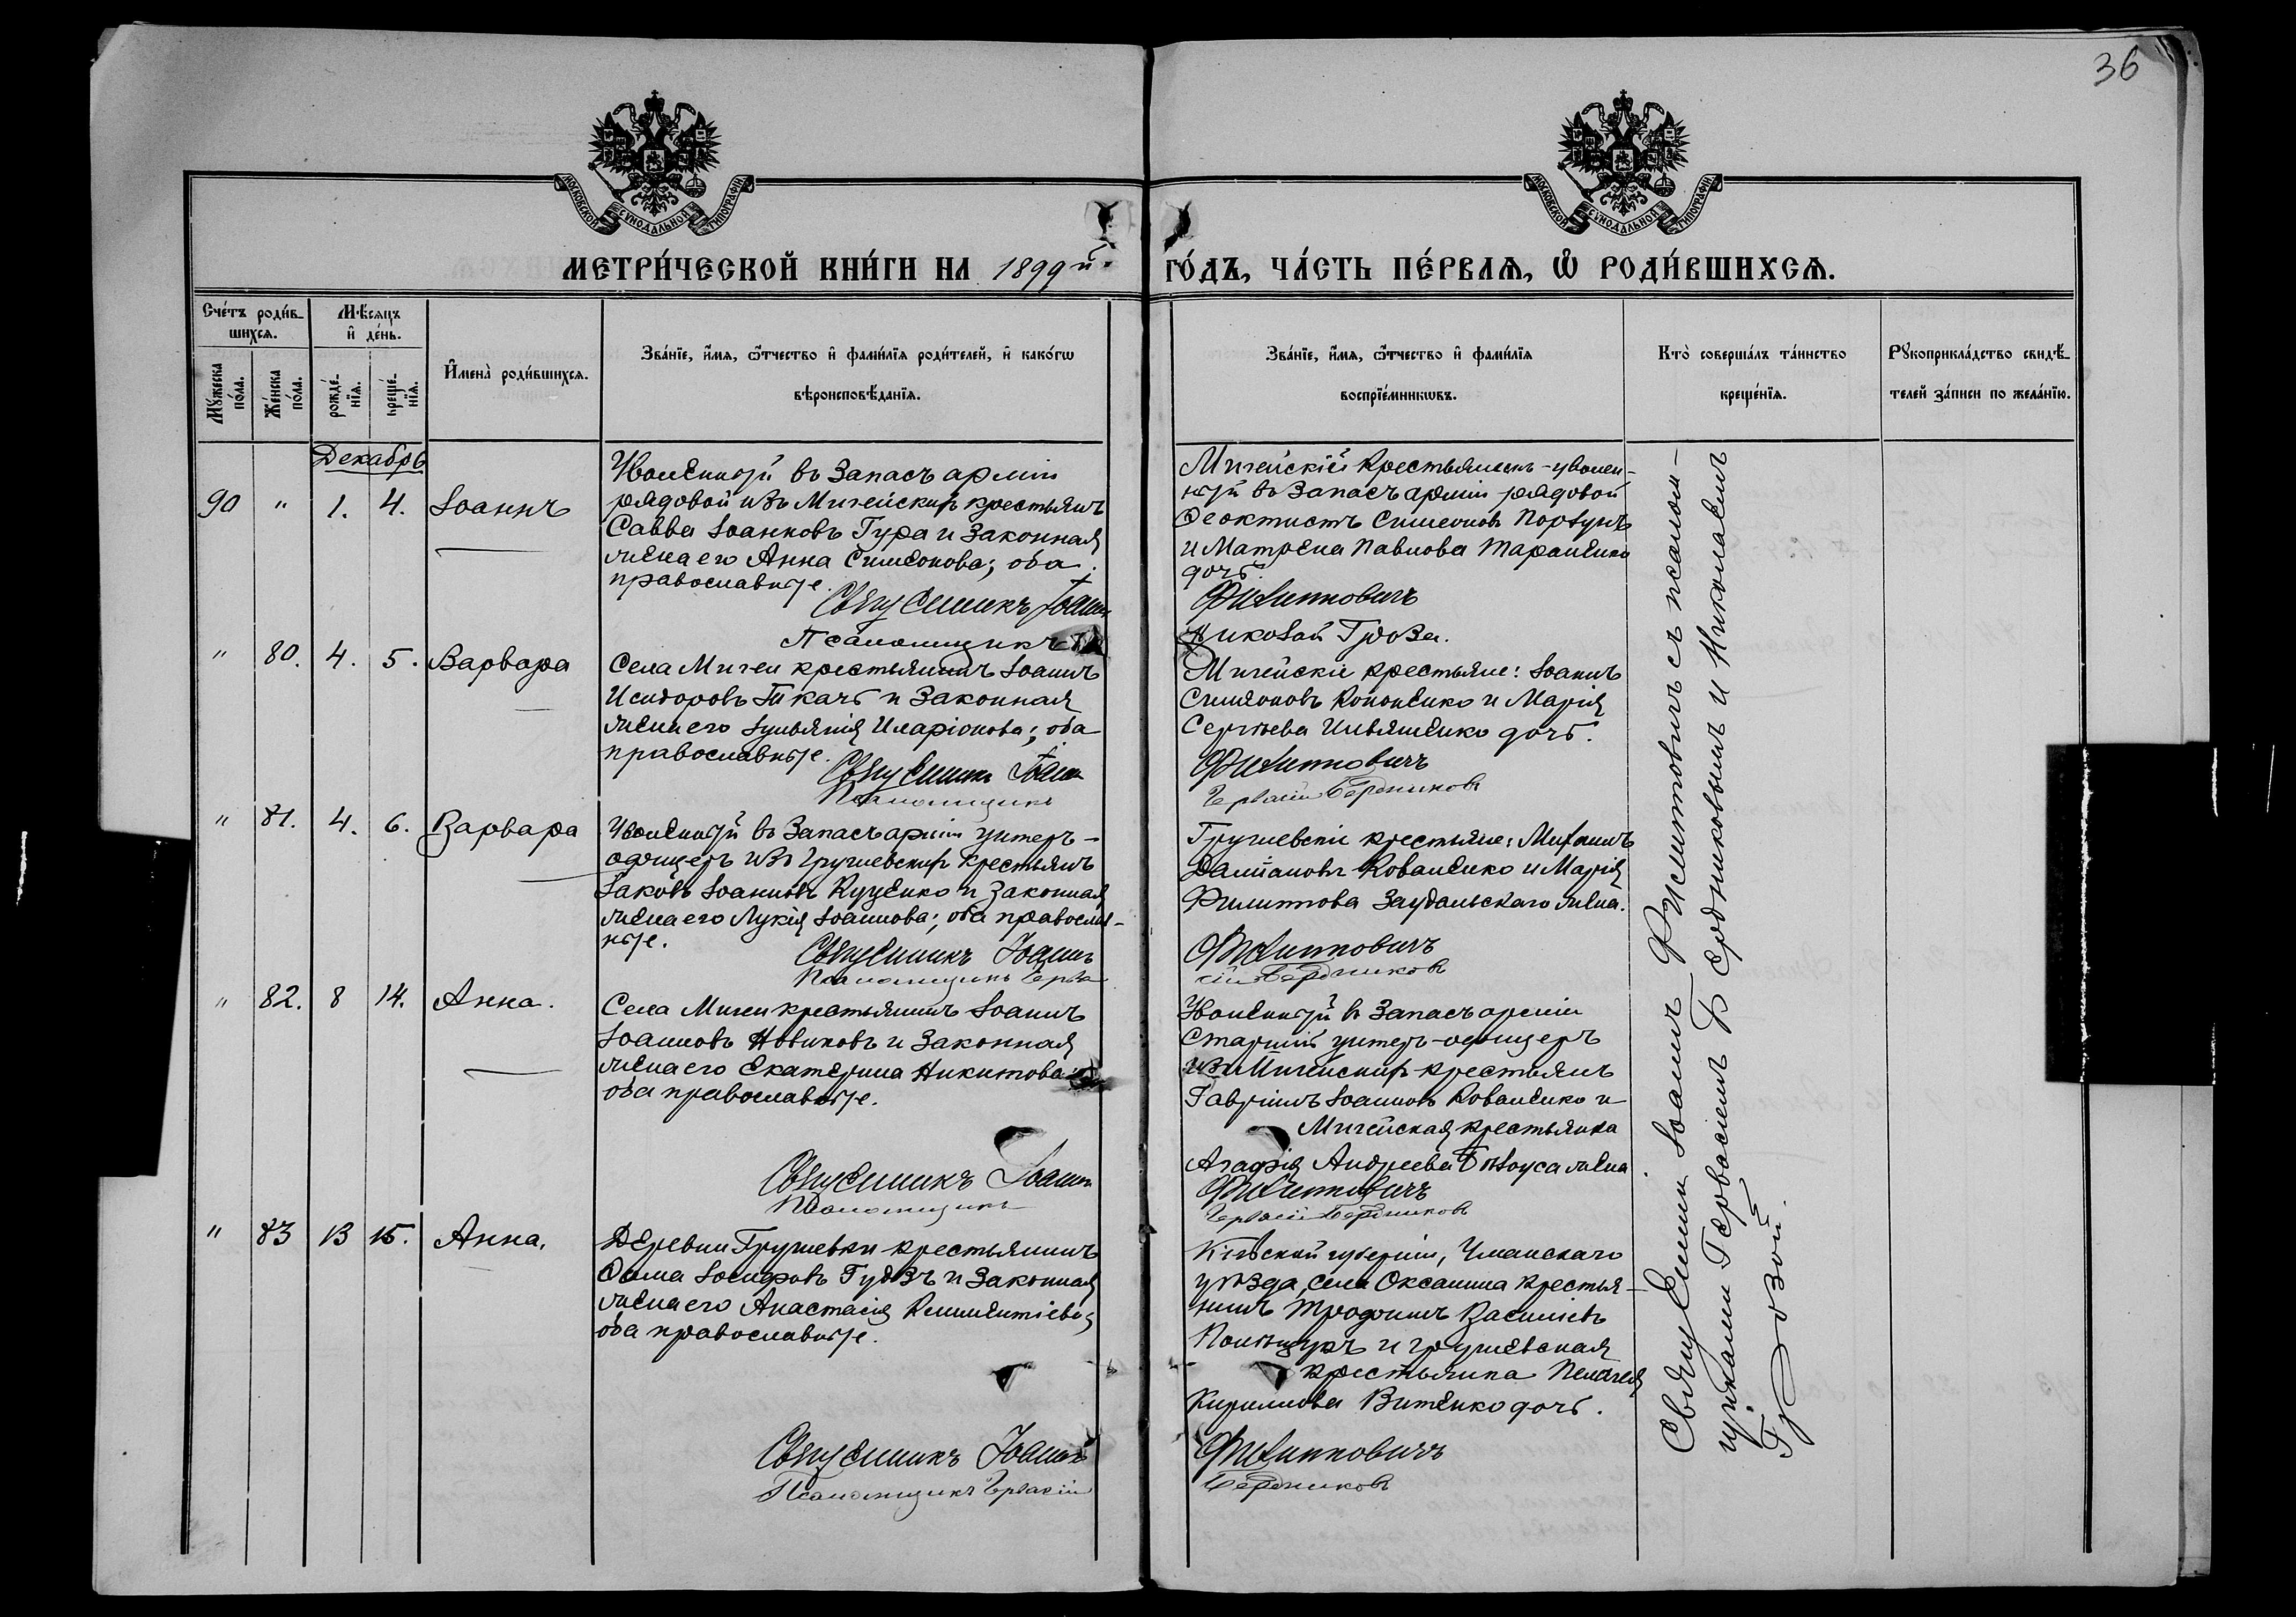 36
МОСКОВСКОЙ СѴНОДАЛЬНОЙ ТИПОГРАФІИ
МОСКОВСКОЙ СѴНОДАЛЬНОЙ ТИПОГРАФІИ
МЕТРИ́ЧЕСКОЙ КНИ́ГИ НА 1899й
ГО́ДЪ, ЧА́СТЬ ПЕ́РВАЯ, Ѡ РОДИ́ВШИХСЯ.
Сче́тъ роди́в-
шихся.
Мѣ́сяцъ
и де́нь.
Имена̀ роди́вшихся.
Зва́нїе, и́мя, ѻ́тчество и фами́лїя роди́телей, и како́гѡ
вѣроисповѣ́данїя.
Му́жеска
по́ла.
Же́нска
по́ла.
рожде́-
нїя.
креще́-
нїя.
Зва́нїе, и́мя, ѻ́тчество и фами́лїя
воспрїе́мникѡвъ.
Кто̀ соверша́лъ та́инство
креще́нїя.
Рꙋкоприкла́дство свидѣ́-
телей за́писи по жела́нїю.
Декабрь
90 " 1. 4. Іоаннъ
Уволенный въ запасъ арміи
рядовой изъ Мигейскихъ крестьянъ
Савва Іоанновъ Гура и законная
жена его Анна Симеонова; оба
православные.
Священникъ Іоаннъ
Псаломщикъ
Мигейскій крестьянинъ - уволен-
ный въ запасъ арміи рядовой
Ѳеоктистъ Симеоновъ Портунъ
и Матрена Павлова Тараненко
дочь.
Филипповичъ
Николай Гроза.
" 80. 4. 5. Варвара
Села Мигеи крестьянинъ Іоаннъ
Исидоровъ Ткачъ и законная
жена его Іуліянія Иларіонова; оба
православные.
Священникъ Іоаннъ
Псаломщикъ
Мигейскіе крестьяне: Іоаннъ
Симеоновъ Кононенко и Марія
Сергѣева Ильяшенко дочь.
Филипповичъ
Гервасій Бердниковъ
" 81. 4. 6. Варвара
Уволенный въ запасъ арміи унтеръ-
офицеръ изъ Грушевскихъ крестьянъ
Іаковъ Іоанновъ Куценко и законная
жена его Лукія Іоаннова; оба православ-
ные.
Священникъ Іоаннъ
Псаломщикъ Герва
Грушевскіе крестьяне: Михаилъ
Даміановъ Коваленко и Марія
Филиппова Заудальскаго жена.
Филипповичъ
сій Бердниковъ
" 82. 8 14. Анна.
Села Мигеи крестьянинъ Іоаннъ
Іоанновъ Новиковъ и законная
жена его Екатерина Никитова;
оба православные.
Священникъ Іоаннъ
Псаломщикъ
Уволенный въ запасъ арміи
старшій унтеръ-офицеръ
изъ Мигейскихъ крестьянъ
Гавріилъ Іоанновъ Коваленко и
Мигейская крестьянка
Агафія Андреева Бѣлоуса жена
Филипповичъ
Гервасій Бердниковъ
" 83 13 15. Анна.
Деревни Грушевки крестьянинъ
Ѳома Іосифовъ Гудзъ и законная
жена его Анастасія Климентіева;
оба православные.
Священникъ Іоаннъ
Псаломщикъ Гервасій
Кіевской губерніи, Уманскаго
уѣзда, села Оксанина крестья-
нинъ Трофимъ Василіевъ
Полищукъ и грушевская
крестьянка Пелагея
Кириллова Витенко дочь.
Филипповичъ
Бердниковъ
Священникъ Іоаннъ Филипповичъ съ псалом-
щиками Гервасіемъ Бердниковымъ и Николаемъ
Грозой.